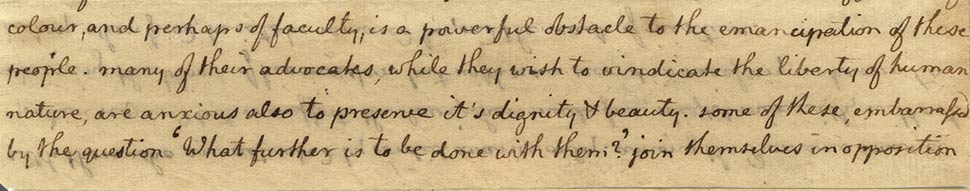 colour, and perhaps of faculty, is a powerful obstacle to the emancipation of these
people. many of their advocates, while they wish to vindicate the liberty of human
nature, are anxious also to preserve it's dignity & beauty. some of these, embarrassed
by the question 'What further is to be done with them?' join themselves in opposition